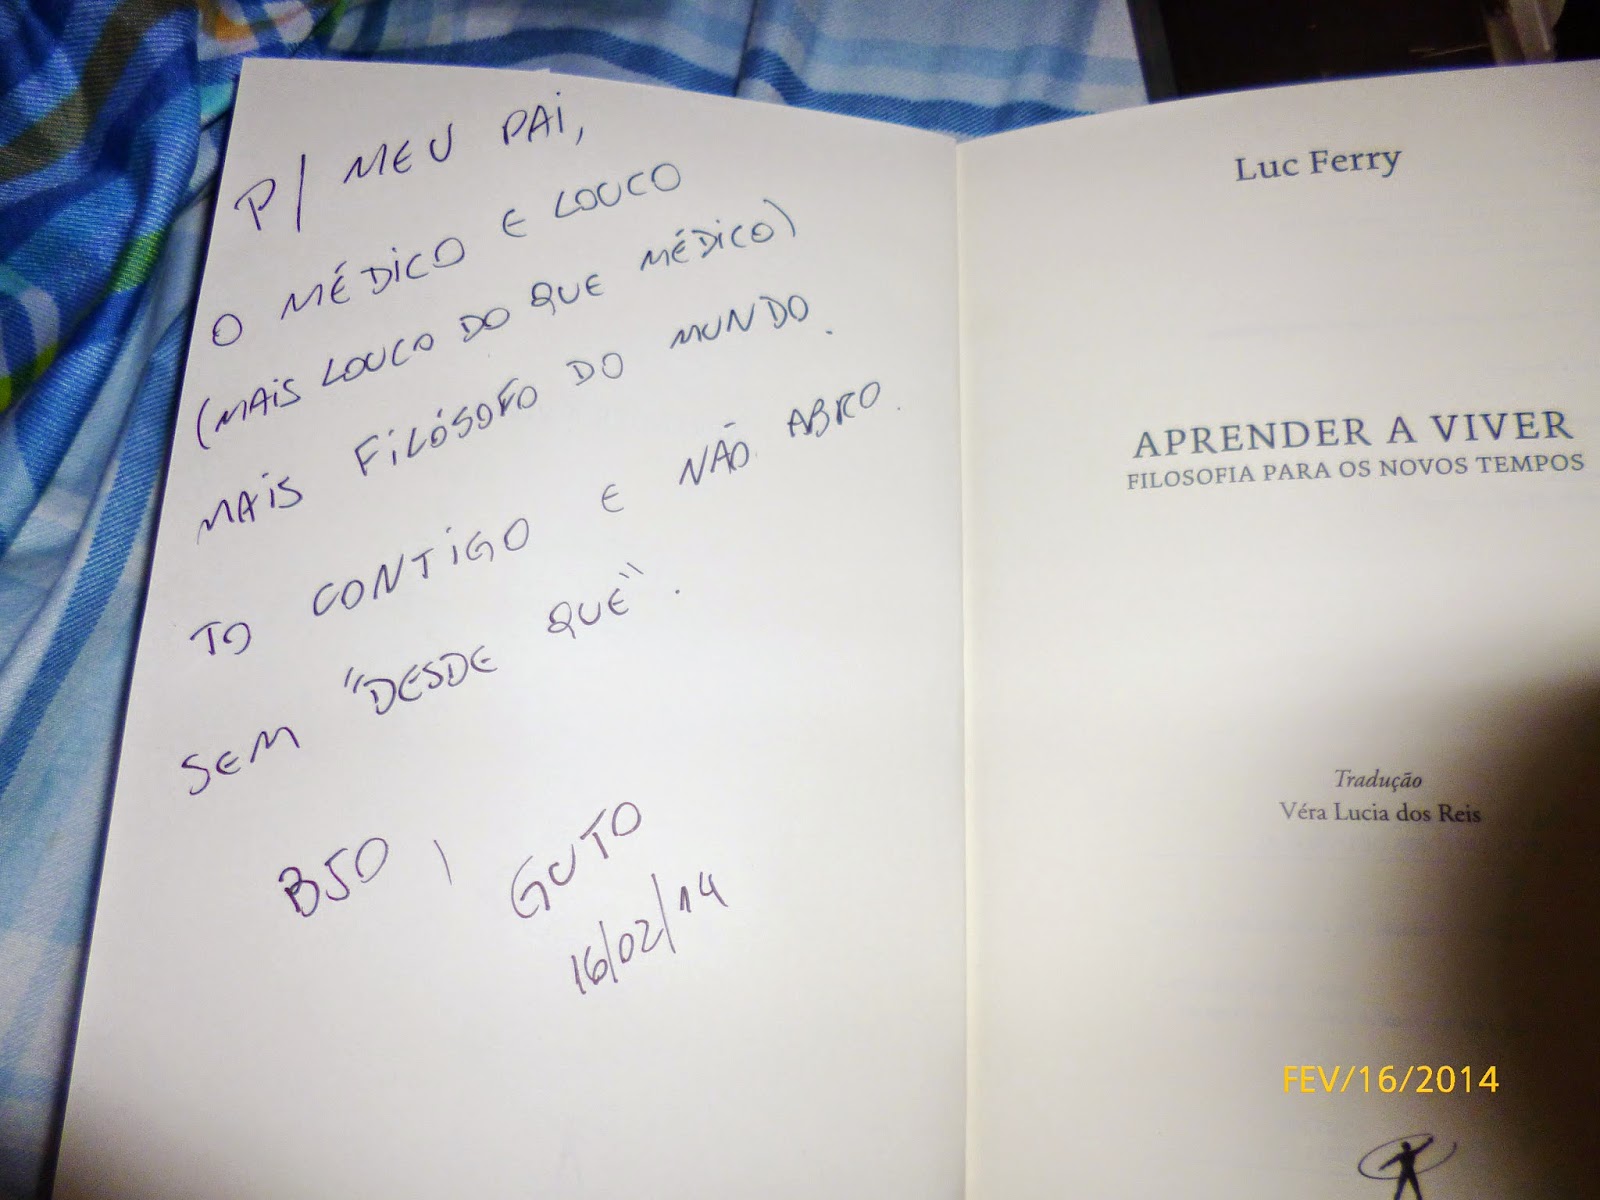 P/ MEU PAI,
O MÉDICO E LOUCO
(MAIS LOUCO DO QUE MÉDICO)
MAIS FILÓSOFO DO MUNDO.
TO CONTIGO E NÃO ABRO.
SEM "DESDE QUE".
BJO, GUTO
16/02/14
Luc Ferry
APRENDER A VIVER
FILOSOFIA PARA OS NOVOS TEMPOS
Tradução
Véra Lucia dos Reis
FEV/16/2014